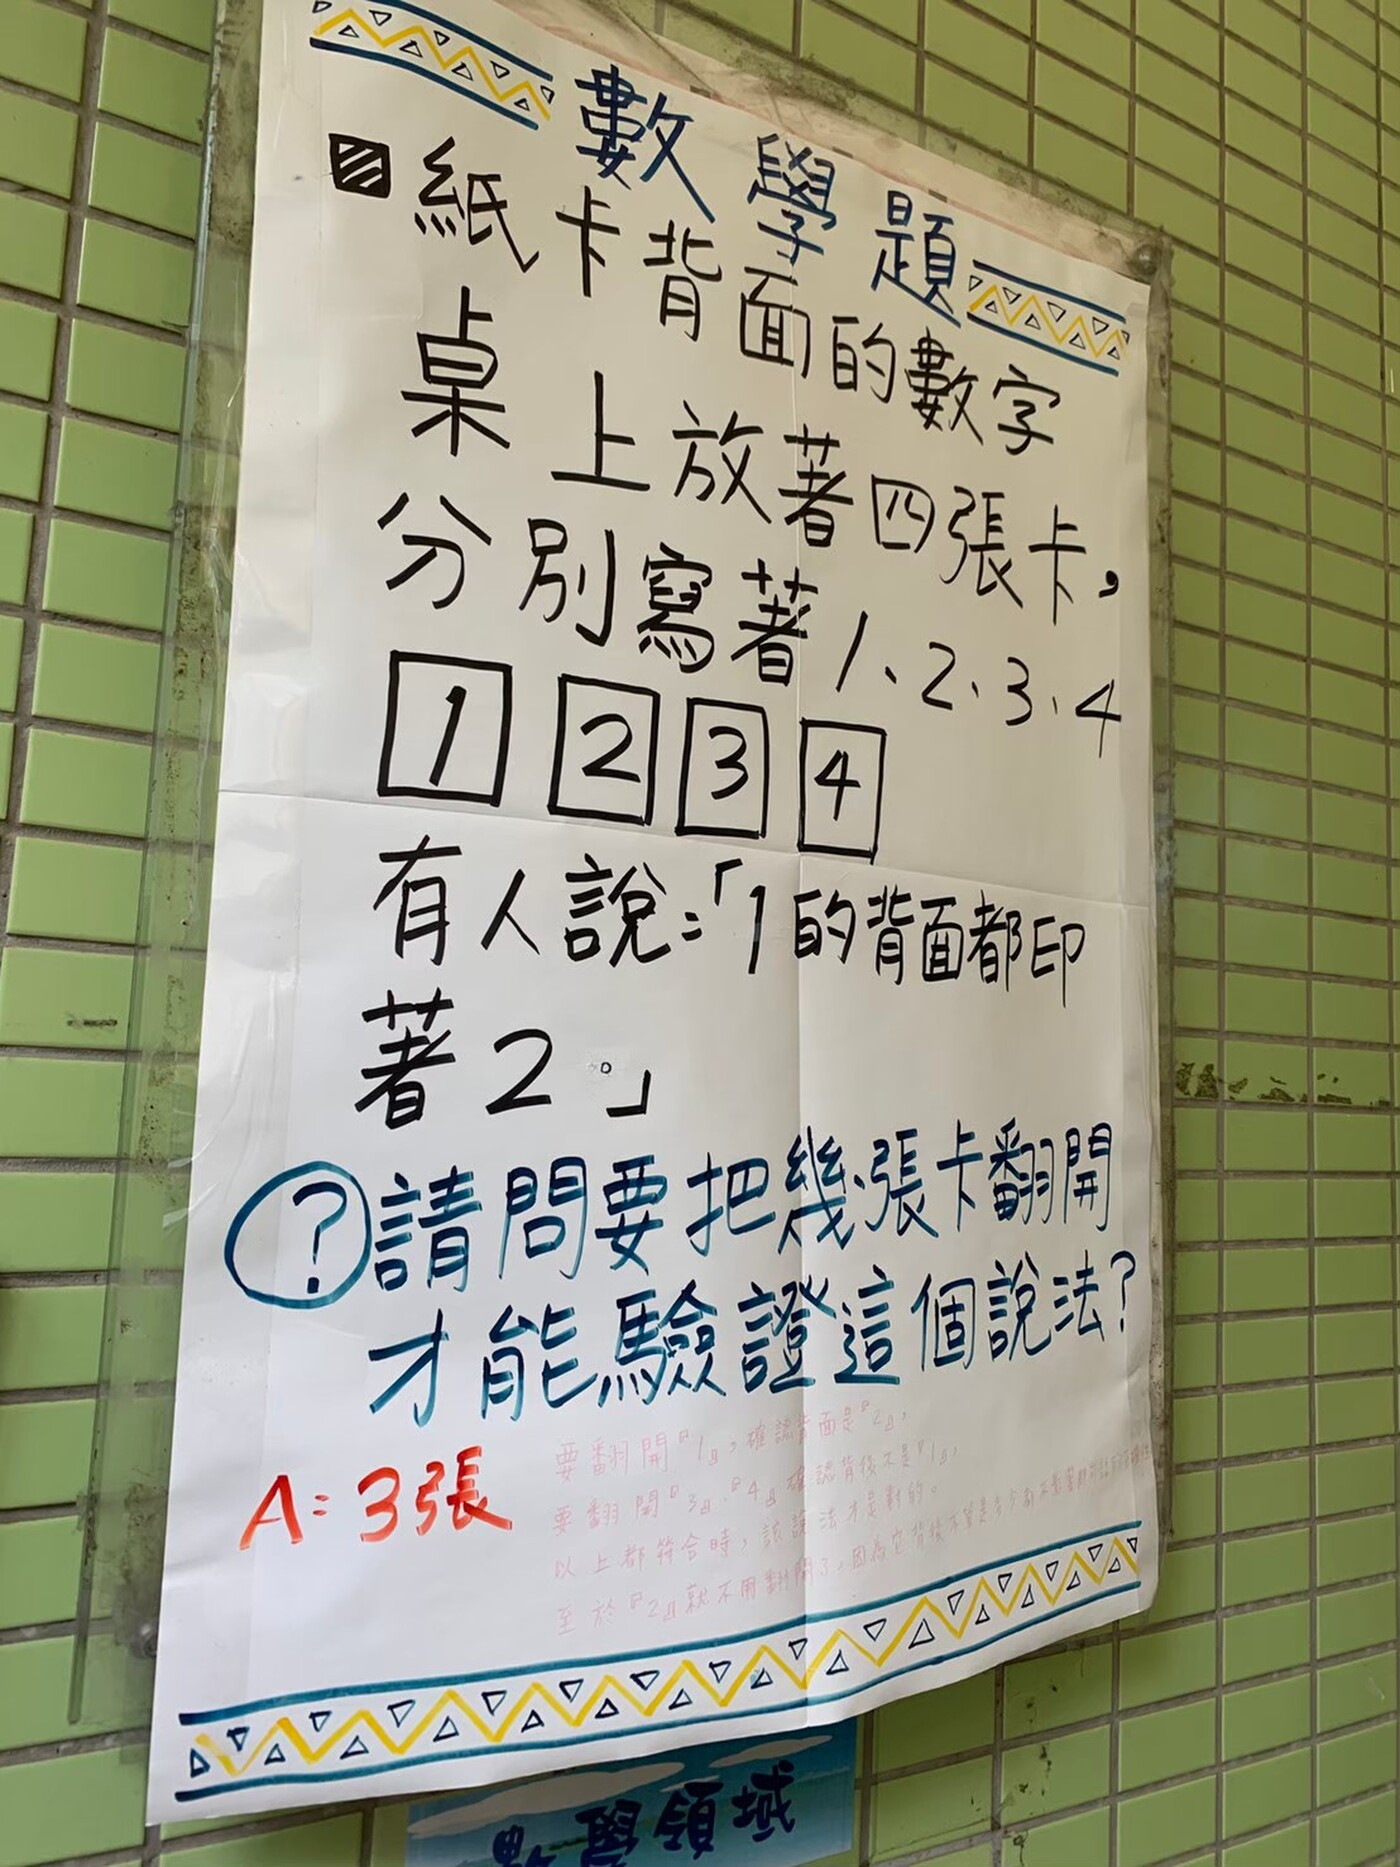 數學題
紙卡背面的數字
桌上放著四張卡，
分別寫著1、2、3、4
1 2 3 4
有人說：「1的背面都印
著2。」
?請問要把幾張卡翻開
才能驗證這個說法？
A：3張
要翻開『1』，確認背面是『2』，
要翻開『3』、『4』確認背後不是『1』，
以上都符合時，該說法才是對的。
至於『2』就不用翻開了，因為它背後不管是多少都不影響
數學領域